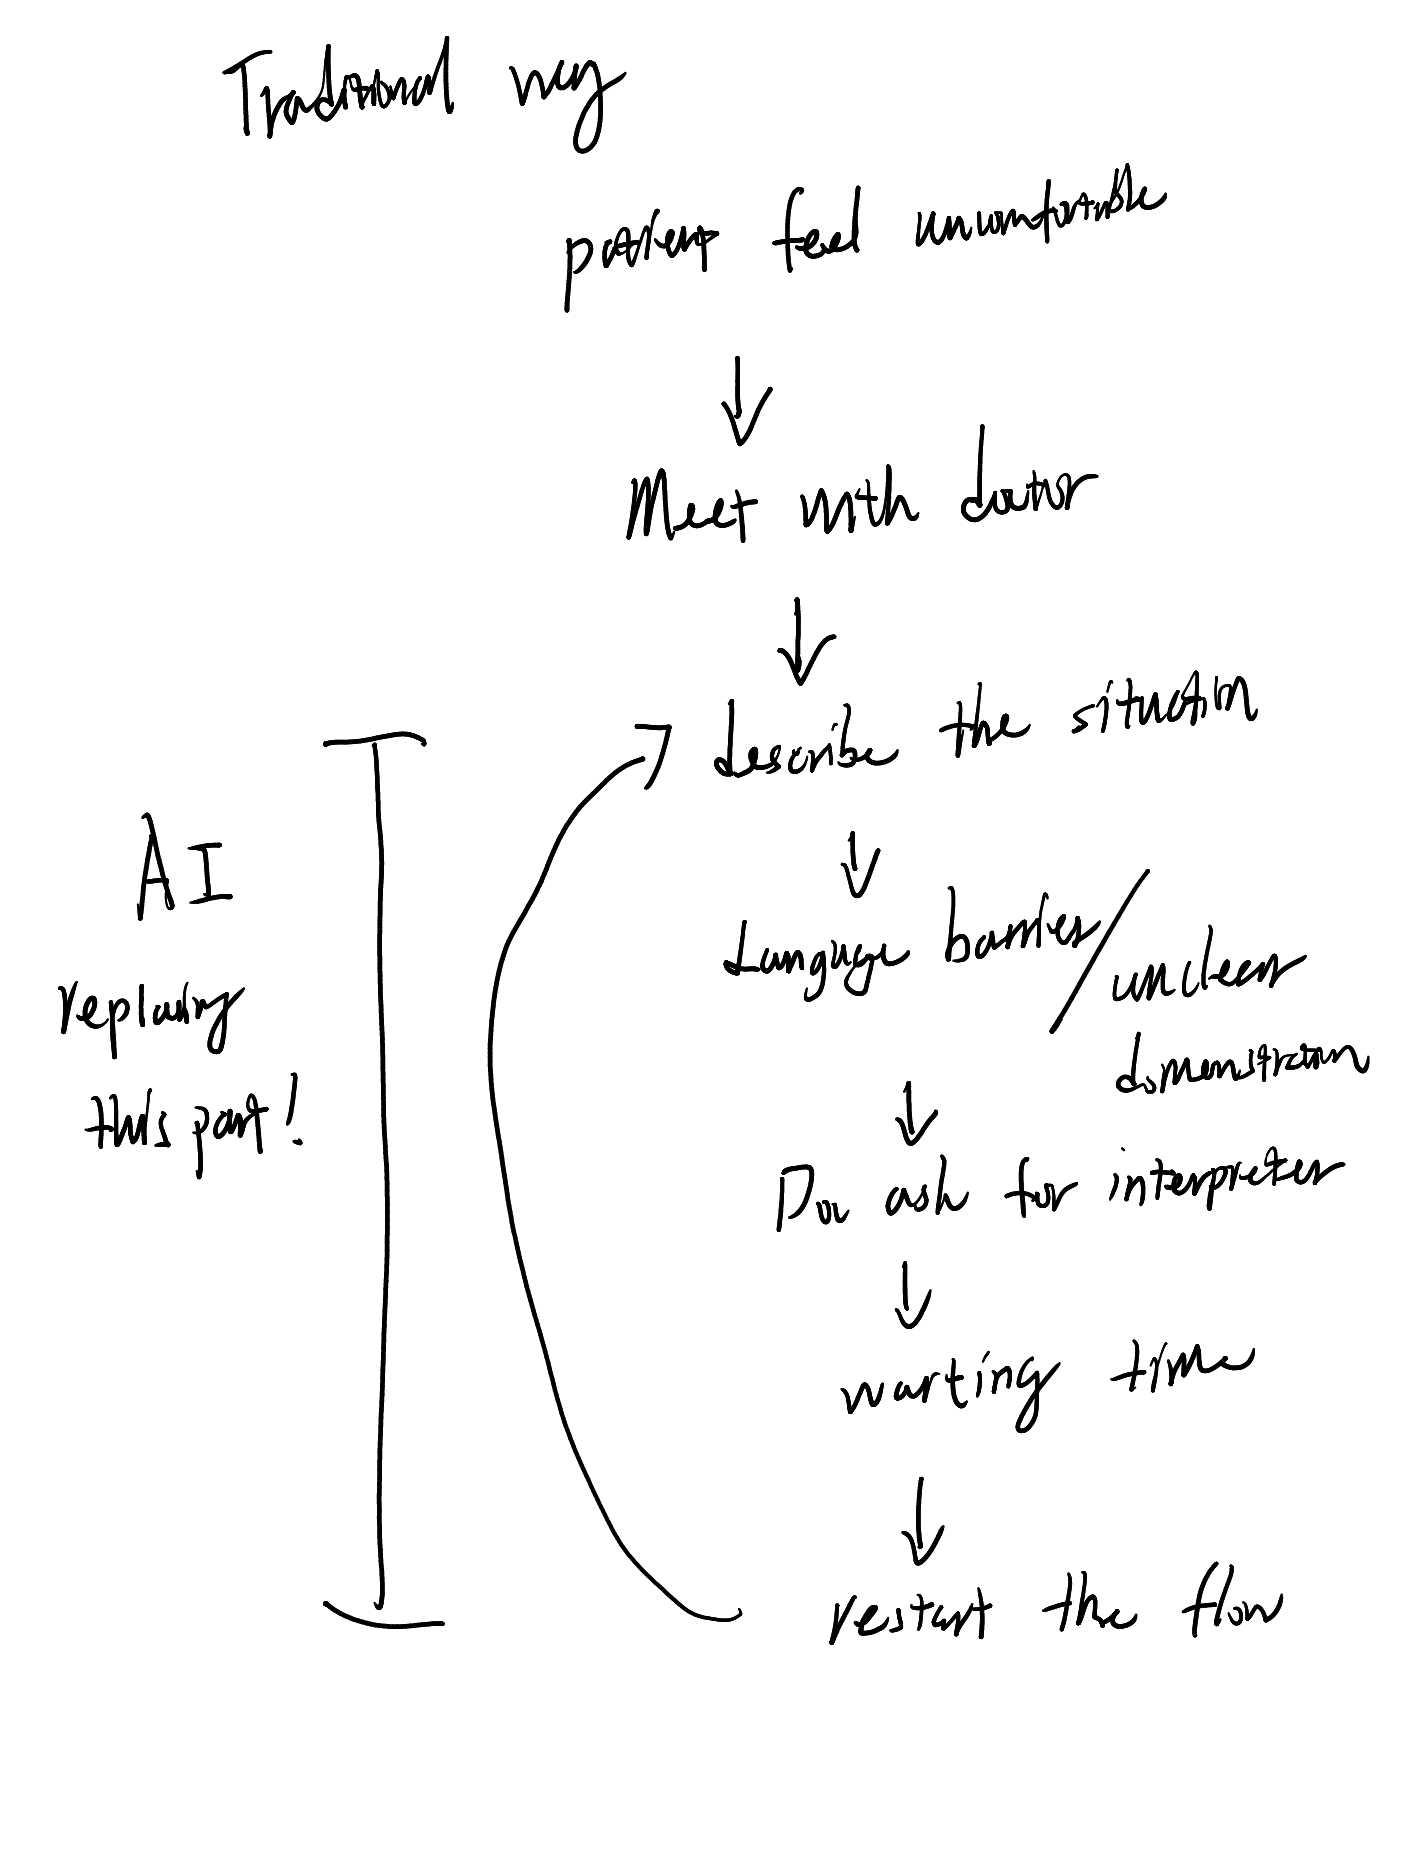 Traditional way
patient feel uncomfortable
Meet with doctor
describe the situation
Language barrier/
unclear
domenstration
Doc ask for interpreter
waiting time
restart the flow
AI
replacing
this part!